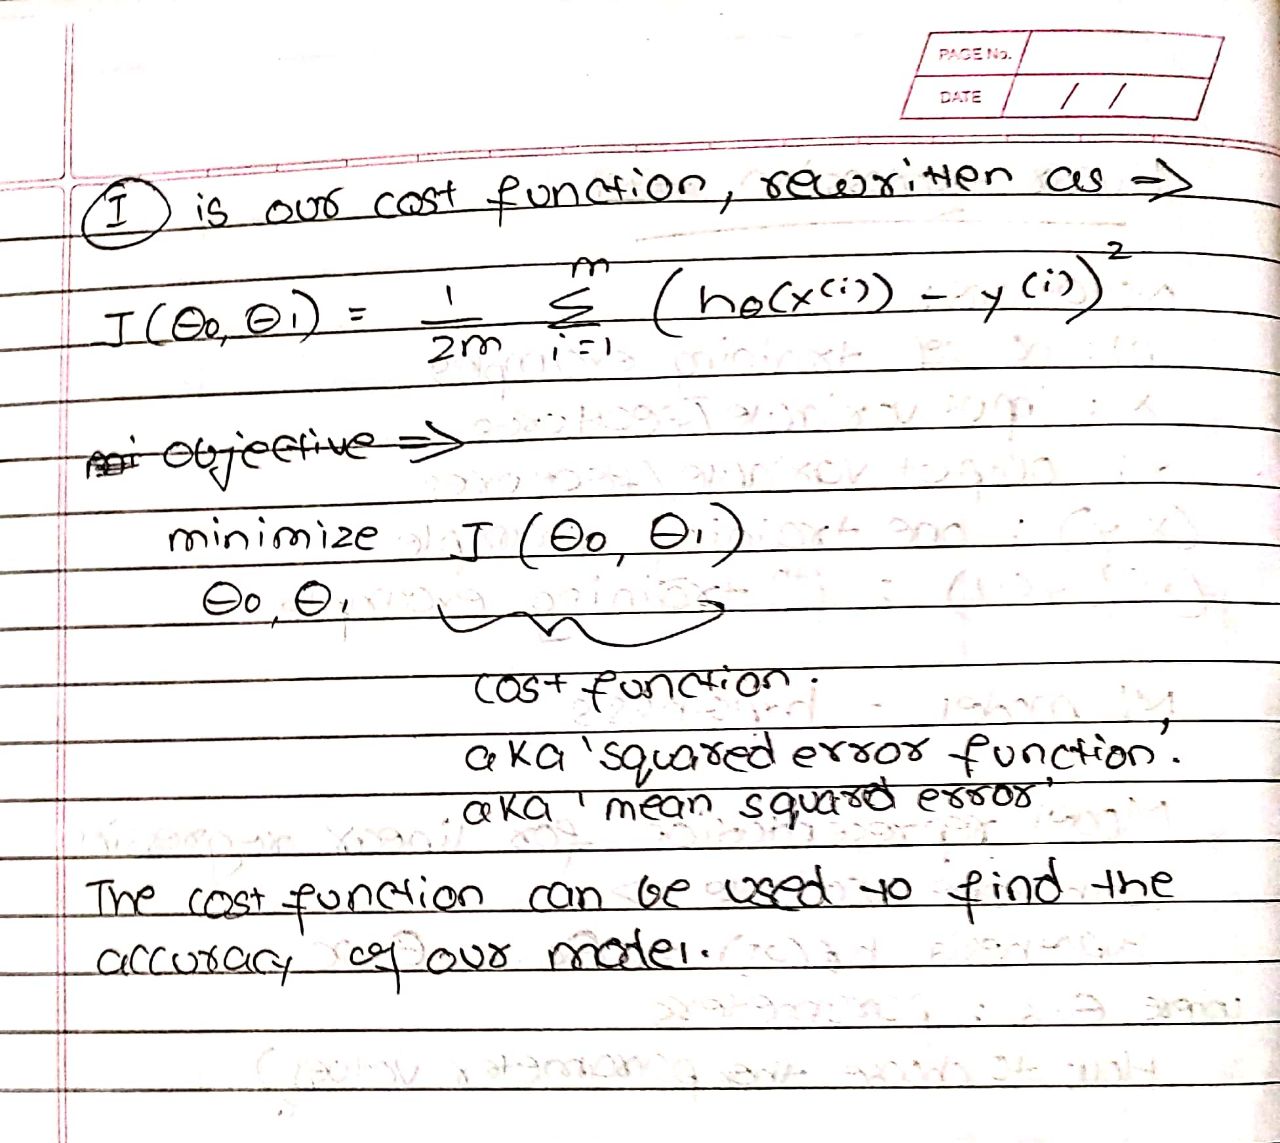 PAGE No.
DATE / /
I is our cost function, rewritten as ⇒
J(θ₀, θ₁) = 1/2m Σ_{i=1}^{m} (h_θ(x⁽ⁱ⁾) - y⁽ⁱ⁾)²
objective ⇒
minimize J (θ₀, θ₁)
θ₀, θ₁
cost function.
aka 'squared error function'.
aka 'mean squared error'
The cost function can be used to find the
accuracy of our model.